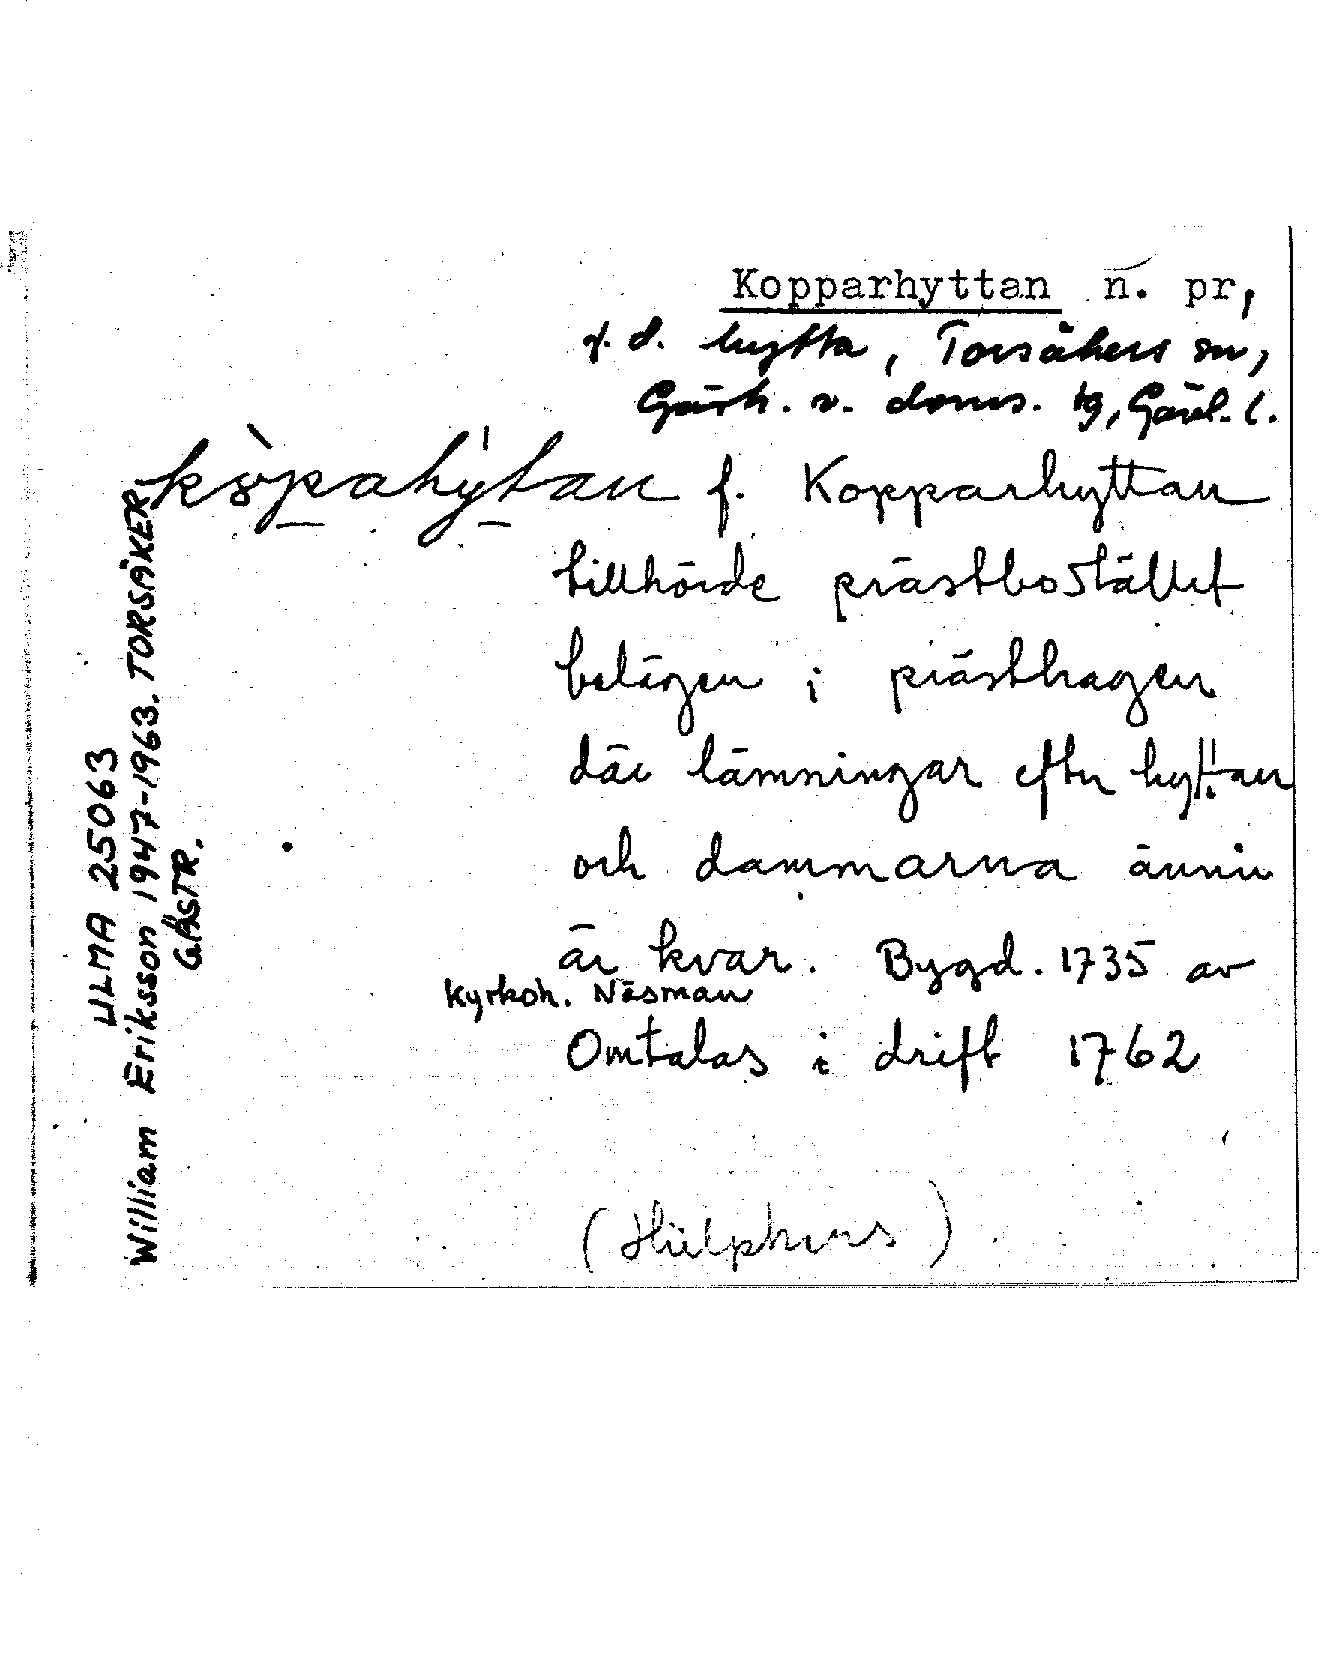 Kopparhyttan n. pr,
f. d. hytta, Torsåkers sn,
Gästr. v. doms. tg, Gävl. l.
köpahy̌tan f. Kopparhyttan
tillhörde prästbostället
belägen i prästhagen
där lämningar efter hyttan
och dammarna ännu
är kvar. Bygd. 1735 av
Kyrkoh. Näsman
Omtalas i drift 1762
(Hülphers)
ULMA 25063
William Eriksson 1947-1963. TORSÅKER,
GÄSTR.